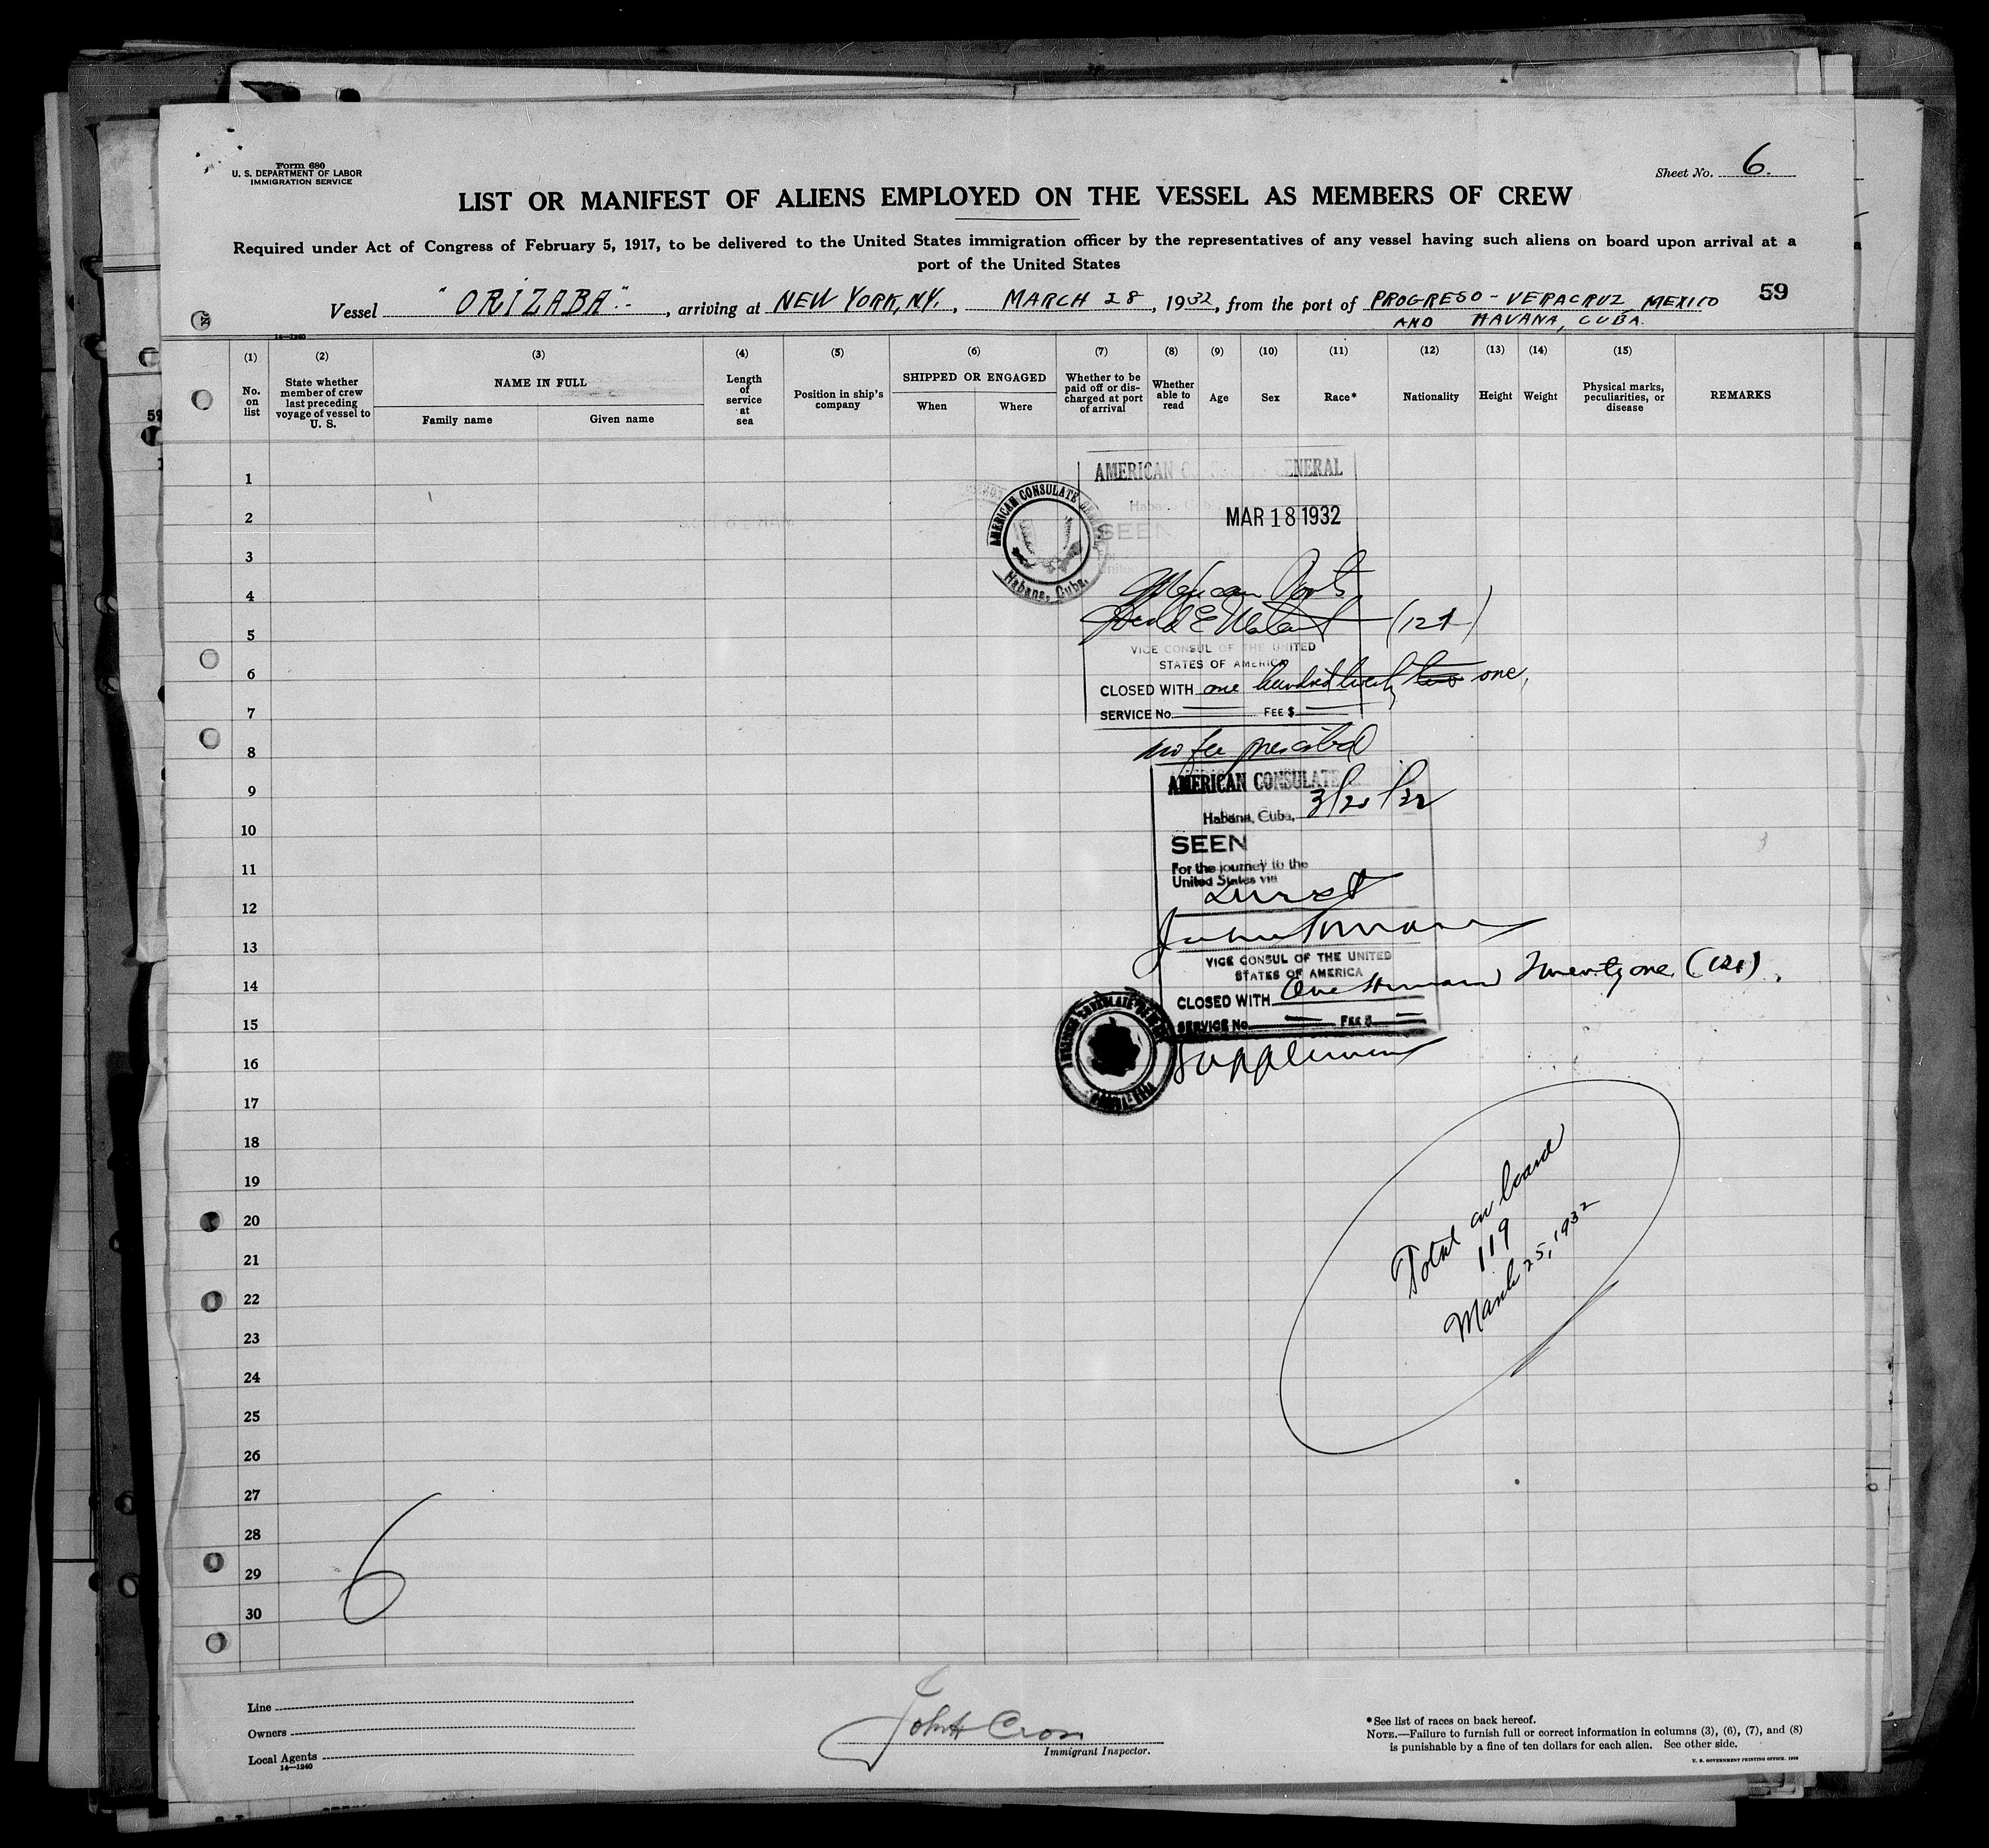 Form 680
U. S. DEPARTMENT OF LABOR
IMMIGRATION SERVICE
Sheet No. 6.
LIST OR MANIFEST OF ALIENS EMPLOYED ON THE VESSEL AS MEMBERS OF CREW
Required under Act of Congress of February 5, 1917, to be delivered to the United States immigration officer by the representatives of any vessel having such aliens on board upon arrival at a
port of the United States
Vessel "ORIZABA".-, arriving at NEW YORK, N.Y., MARCH 28, 1932, from the port of PROGRESO - VERACRUZ MEXICO
AND HAVANA, CUBA.
59
14—1240
(1) (2) (3) (4) (5) (6) (7) (8) (9) (10) (11) (12) (13) (14) (15)
No. on list
State whether member of crew last preceding voyage of vessel to U. S.
NAME IN FULL
Family name
Given name
Length of service at sea
Position in ship's company
SHIPPED OR ENGAGED
When
Where
Whether to be paid off or discharged at port of arrival
Whether able to read
Age
Sex
Race*
Nationality
Height
Weight
Physical marks, peculiarities, or disease
REMARKS
1
2
3
4
5
6
7
8
9
10
11
12
13
14
15
16
17
18
19
20
21
22
23
24
25
26
27
28
29
30
AMERICAN GENERAL
AMERICAN CONSULATE
Habana, Cuba.
MAR 18 1932
SEEN
Mexican Ports
(121)
VICE CONSUL OF THE UNITED
STATES OF AMERICA
CLOSED WITH one hundred twenty two one,
SERVICE No. FEE $
no fee prescribed
AMERICAN CONSULATE
Habana, Cuba, 3/20/32
SEEN
For the journey to the
United States via
direct
VICE CONSUL OF THE UNITED
STATES OF AMERICA
CLOSED WITH One Hundred Twenty one (121).
SERVICE No. FEE $
Total on board
119
March 25, 1932
6
Line
Owners
Local Agents
14—1240
John Cron
Immigrant Inspector.
*See list of races on back hereof.
NOTE.—Failure to furnish full or correct information in columns (3), (6), (7), and (8)
is punishable by a fine of ten dollars for each alien. See other side.
U. S. GOVERNMENT PRINTING OFFICE.